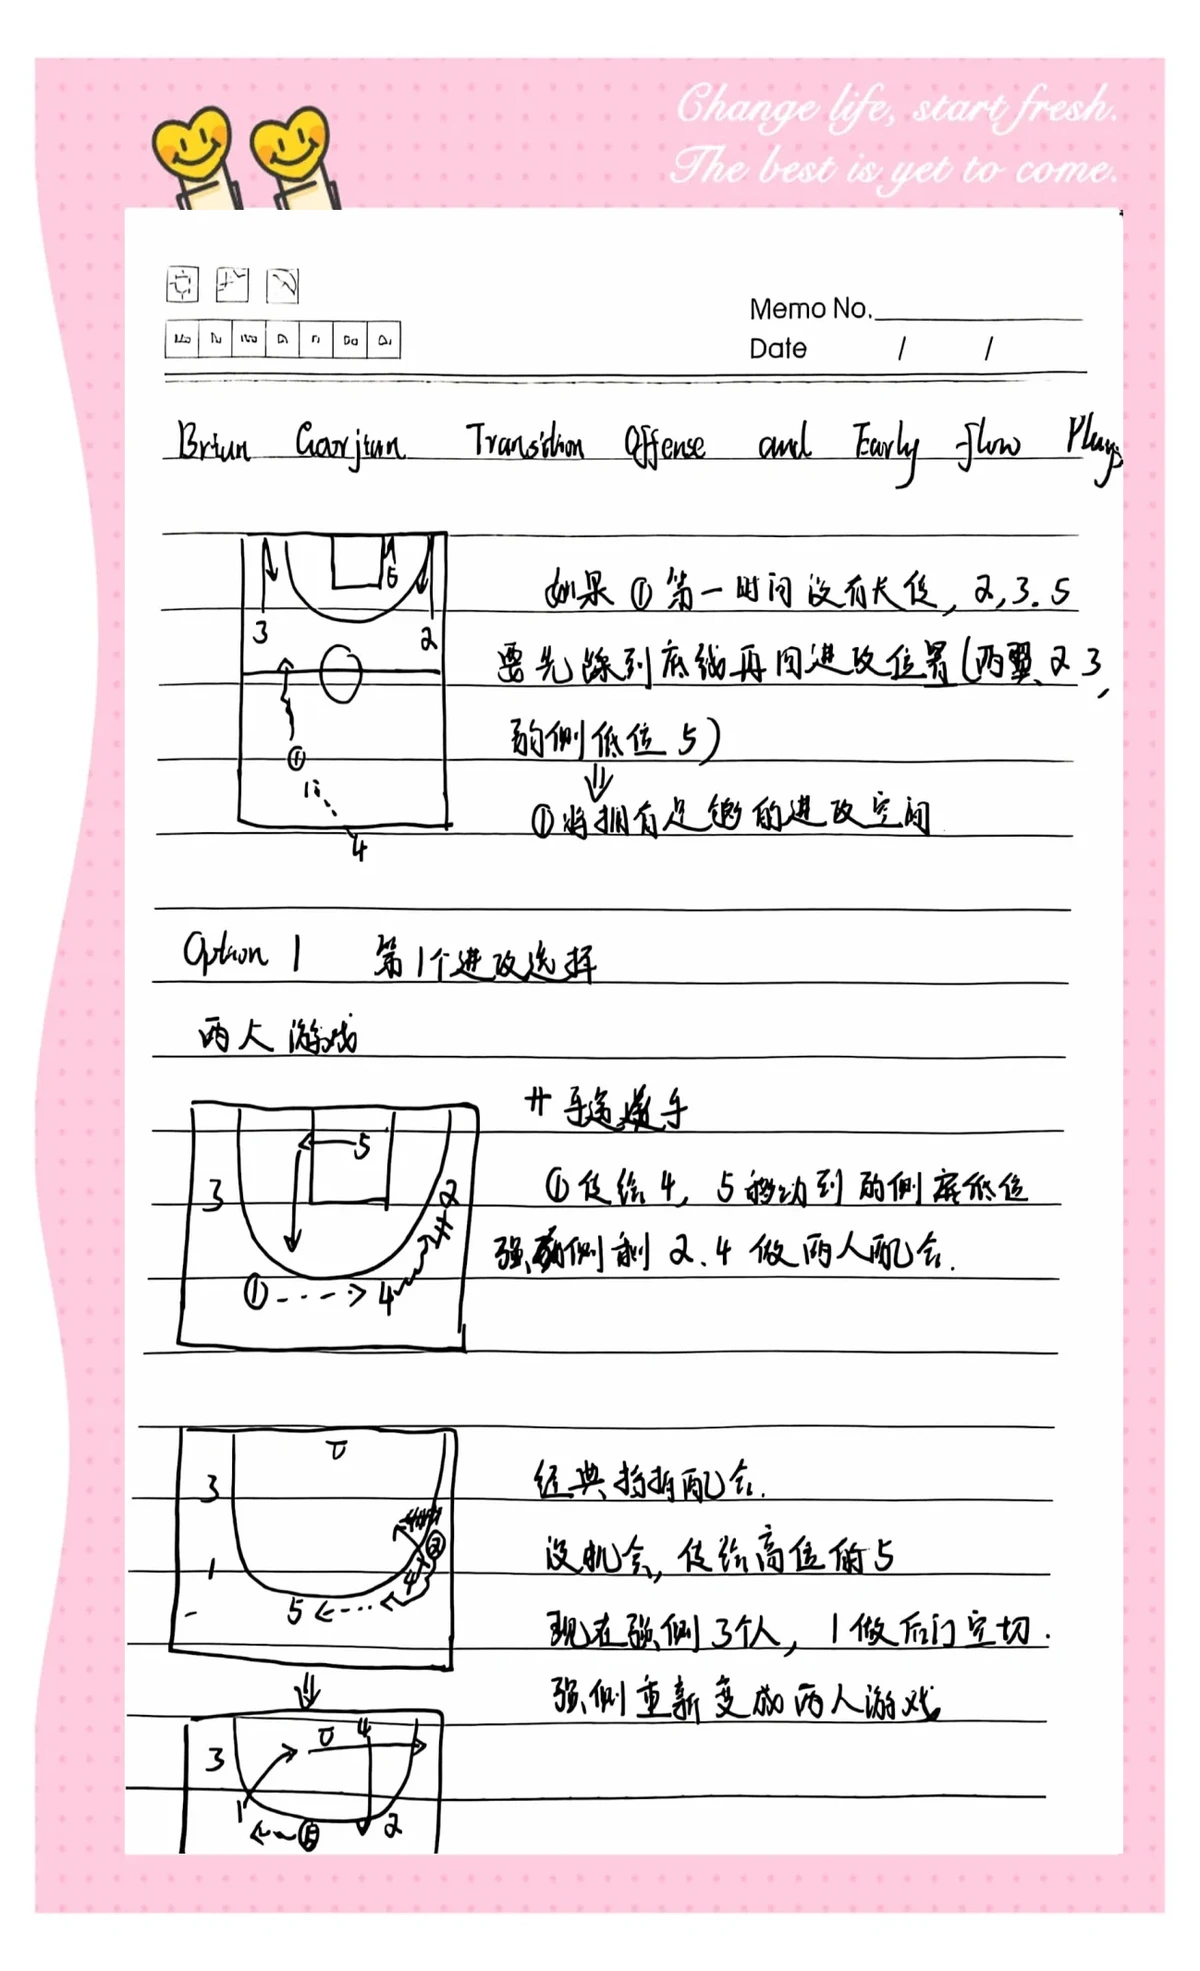 Change life, start fresh.
The best is yet to come.
Memo No.
Date / /
Brian Gorjian Transition Offense and Early flow Plays
如果①第一时间没有长传, 2, 3. 5
要先踩到底线再回进攻位置(两翼 2 3,
弱侧低位 5)
①将拥有足够的进攻空间
3
5
2
①
1
4
Option 1 第1个进攻选择
两人游戏
# 手递手
①传给4, 5移动到弱侧底低位
强侧剩 2. 4 做两人配合.
3
5
2
① 4
经典挡拆配合.
没机会, 传给高位的5
现在强侧3个人, 1做后门空切.
强侧重新变成两人游戏
3
1
5
4
②
3
4
1
2